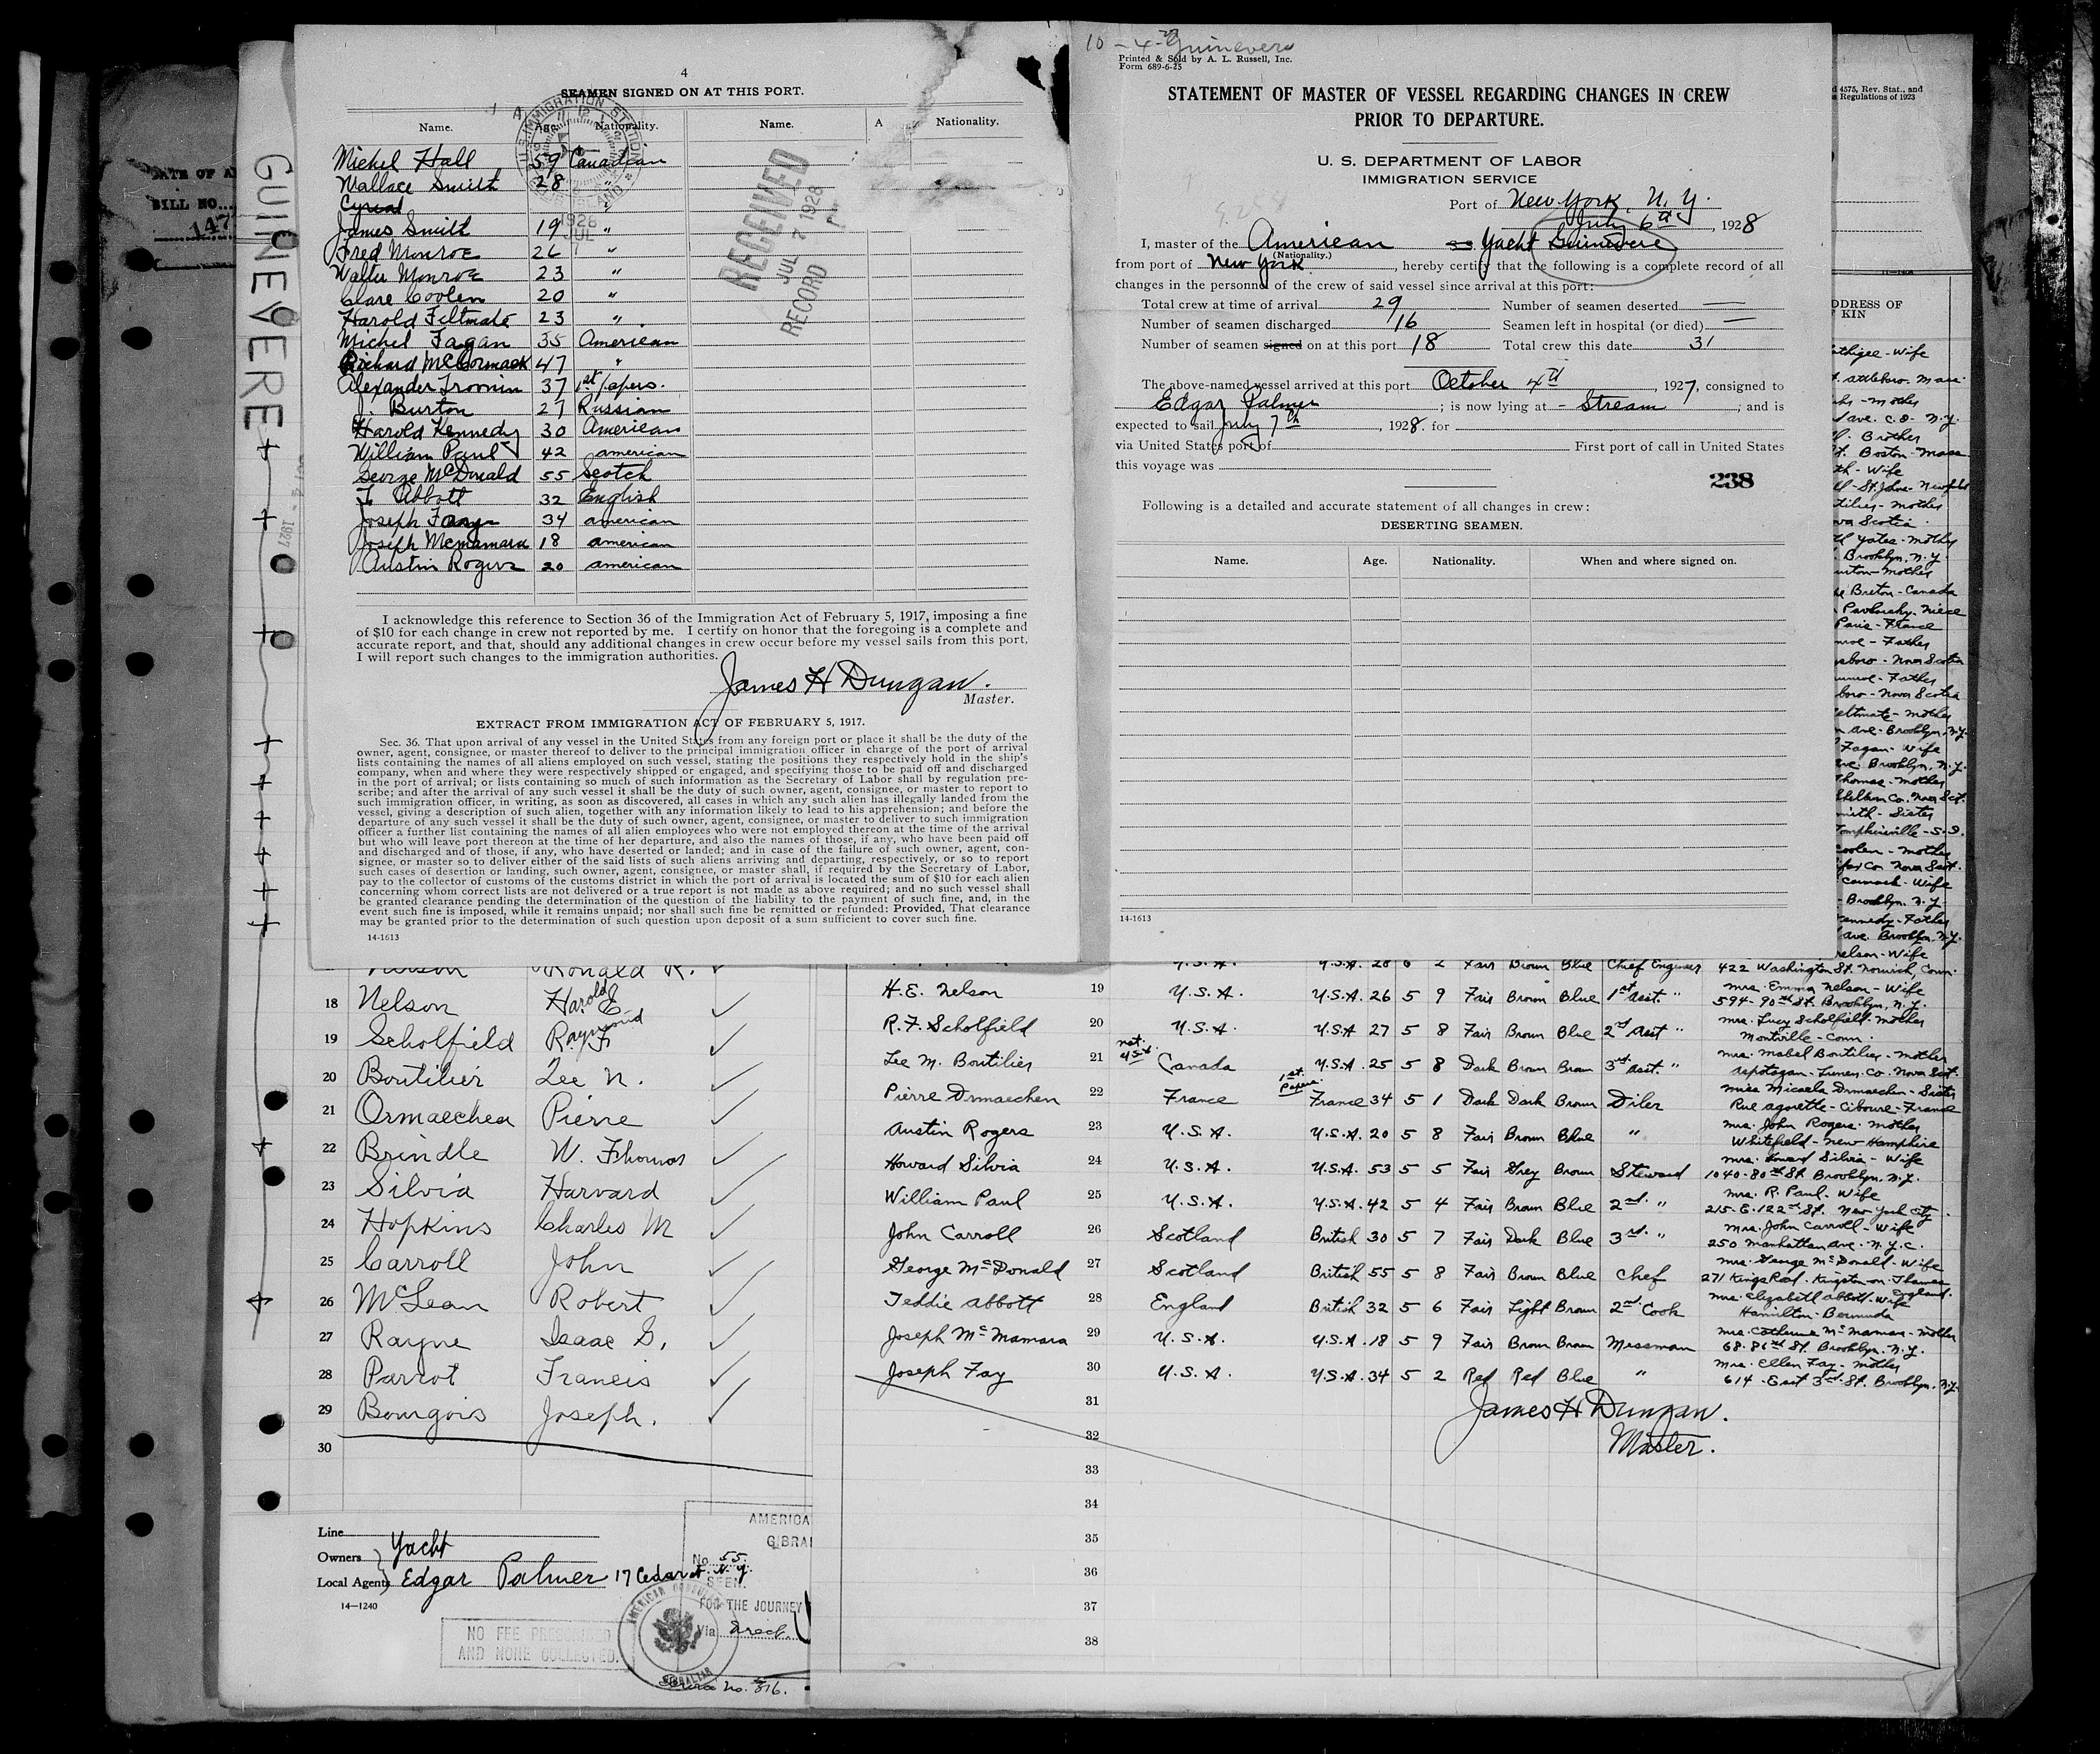 4
SEAMEN SIGNED ON AT THIS PORT.
Name. Age. Nationality. Name. A Nationality.
Michel Hall 59 Canadian
Wallace Smith 28 "
Cyriad "
James Smith 19 "
Fred Monroe 26 "
Walter Monroe 23 "
Clare Coolen 20 "
Harold Feltmate 23 "
Michel Fagan 35 American
Richard McCormack 47 "
Alexander Tromin 37 1st papers.
J. Burton 27 Russian
Harold Kennedy 30 American
William Paul 42 american
George McDonald 55 Scotch
T Abbott 32 English
Joseph Fay 34 american
Joseph Mcmamara 18 american
Austin Rogers 20 american
U.S. IMMIGRATION STATION
1928 JUL 7
RECEIVED
JUL 7 1928
RECORD
I acknowledge this reference to Section 36 of the Immigration Act of February 5, 1917, imposing a fine
of $10 for each change in crew not reported by me. I certify on honor that the foregoing is a complete and
accurate report, and that, should any additional changes in crew occur before my vessel sails from this port,
I will report such changes to the immigration authorities.
James H Dungan.
Master.
EXTRACT FROM IMMIGRATION ACT OF FEBRUARY 5, 1917.
Sec. 36. That upon arrival of any vessel in the United States from any foreign port or place it shall be the duty of the
owner, agent, consignee, or master thereof to deliver to the principal immigration officer in charge of the port of arrival
lists containing the names of all aliens employed on such vessel, stating the positions they respectively hold in the ship's
company, when and where they were respectively shipped or engaged, and specifying those to be paid off and discharged
in the port of arrival; or lists containing so much of such information as the Secretary of Labor shall by regulation pre-
scribe; and after the arrival of any such vessel it shall be the duty of such owner, agent, consignee, or master to report to
such immigration officer, in writing, as soon as discovered, all cases in which any such alien has illegally landed from the
vessel, giving a description of such alien, together with any information likely to lead to his apprehension; and before the
departure of any such vessel it shall be the duty of such owner, agent, consignee, or master to deliver to such immigration
officer a further list containing the names of all alien employees who were not employed thereon at the time of the arrival
but who will leave port thereon at the time of her departure, and also the names of those, if any, who have been paid off
and discharged and of those, if any, who have deserted or landed; and in case of the failure of such owner, agent, con-
signee, or master so to deliver either of the said lists of such aliens arriving and departing, respectively, or so to report
such cases of desertion or landing, such owner, agent, consignee, or master shall, if required by the Secretary of Labor,
pay to the collector of customs of the customs district in which the port of arrival is located the sum of $10 for each alien
concerning whom correct lists are not delivered or a true report is not made as above required; and no such vessel shall
be granted clearance pending the determination of the question of the liability to the payment of such fine, and, in the
event such fine is imposed, while it remains unpaid; nor shall such fine be remitted or refunded: Provided, That clearance
may be granted prior to the determination of such question upon deposit of a sum sufficient to cover such fine.
14-1613
10 - 4 Guinevere
Printed & Sold by A. L. Russell, Inc.
Form 689-6-25
STATEMENT OF MASTER OF VESSEL REGARDING CHANGES IN CREW
PRIOR TO DEPARTURE.
U. S. DEPARTMENT OF LABOR
IMMIGRATION SERVICE
Port of New York, N. Y.
July 6th, 1928
I, master of the American ss Yacht Guinevere
(Nationality.)
from port of New York, hereby certify that the following is a complete record of all
changes in the personnel of the crew of said vessel since arrival at this port:
Total crew at time of arrival 29 Number of seamen deserted —
Number of seamen discharged 16 Seamen left in hospital (or died) —
Number of seamen signed on at this port 18 Total crew this date 31
The above-named vessel arrived at this port October 4th, 1927, consigned to
Edgar Palmer; is now lying at - Stream; and is
expected to sail July 7th, 1928. for
via United States port of First port of call in United States
this voyage was
238
Following is a detailed and accurate statement of all changes in crew:
DESERTING SEAMEN.
Name. Age. Nationality. When and where signed on.
14-1613
GUINEVERE
BILL NO.
147
4575, Rev. Stat., and
Regulations of 1923
DDRESS OF
KIN
Ronald R.
18 Nelson Harold E
19 Scholfield Raymond F
20 Boutilier Lee N.
21 Ormaechea Pierre
22 Brindle W. Thomas
23 Silvia Harvard
24 Hopkins Charles M
25 Carroll John
26 McLean Robert
27 Rayne Isaac G.
28 Parrot Francis
29 Bourgois Joseph.
30
Line
Owners Yacht
Local Agents Edgar Palmer 17 Cedar st. N.Y.
14—1240
NO FEE PRESCRIBED
AND NONE COLLECTED.
AMERICA
GIBRA
No. 55
SEEN.
FOR THE JOURNEY
Via Direct
AMERICAN CONSULATE
GIBRALTAR
Service No. 816.
U.S.A. U.S.A. 28 6 2 Fair Brown Blue Chief Engineer 422 Washington St. Norwich, Conn.
H.E. Nelson 19 U.S.A. U.S.A. 26 5 9 Fair Brown Blue 1st asst. " Mrs. Emma Nelson - Wife
594 - 90th St. Brooklyn, N.Y.
R.F. Scholfield 20 U.S.A. U.S.A 27 5 8 Fair Brown Blue 2nd asst " Mrs. Lucy Scholfield - mother
Montville - Conn.
Lee M. Boutilier 21 Canada U.S.A. 25 5 8 Dark Brown Brown 3rd asst. " Mrs. Mabel Boutilier - mother
Aspotogan - Lunen. Co. Nova Scot.
Pierre Ormaechea 22 France 1st Papers. France 34 5 1 Dark Dark Brown Oiler Miss Micaela Ormaechea - Sister
Rue agorette - Ciboure - France
Austin Rogers 23 U.S.A. U.S.A. 20 5 8 Fair Brown Blue " Mrs. John Rogers - mother
Whitefield - New Hampshire
Howard Silvia 24 U.S.A. U.S.A. 53 5 5 Fair Grey Brown Steward Mrs. Howard Silvia - Wife
1040 - 80th St Brooklyn, N.Y.
William Paul 25 U.S.A. U.S.A. 42 5 4 Fair Brown Blue 2nd " Mrs. R. Paul - Wife
215 - E. 122nd St. New York City
John Carroll 26 Scotland British 30 5 7 Fair Dark Blue 3rd " Mrs. John Carroll - Wife
250 Manhattan ave. N.Y.C.
George McDonald 27 Scotland British 55 5 8 Fair Brown Blue Chef Mrs. George McDonald - Wife
271 Kings Road. Kingston on Thames England.
Teddie Abbott 28 England British 32 5 6 Fair Light Brown 2nd Cook Mrs. Elizabeth Abbott - Wife
Hamilton - Bermuda
Joseph McMamara 29 U.S.A. U.S.A. 18 5 9 Fair Brown Brown Messman Mrs. Catherine McNamara - mother
68 - 86th St. Brooklyn, N.Y.
Joseph Fay 30 U.S.A. U.S.A. 34 5 2 Red Red Blue " Mrs. Ellen Fay - mother
614 - East 3rd St. Brooklyn, N.Y.
31
James H Dungan.
32
Master.
33
34
35
36
37
38